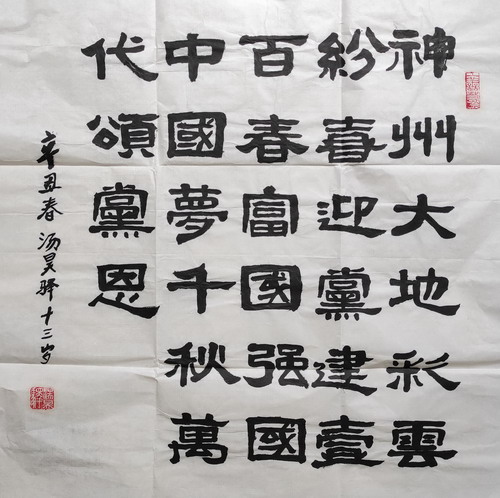 神州大地彩雲
紛喜迎黨建壹
百春富國强國
中國夢千秋萬
代頌黨恩
辛丑春汤昊驿十三岁